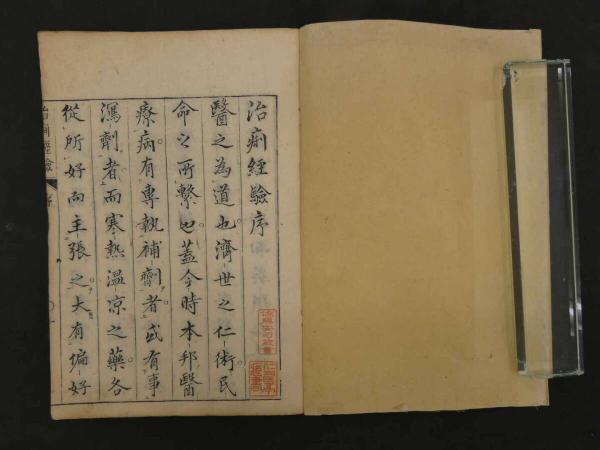 治痢經驗序
醫之為道也濟世之仁術民
命之所繫也蓋今時本邦醫
療病有專執補劑者或有事
瀉劑者而寒熱温凉之藥各
從所好而主張之大有偏好
治痢經驗 序